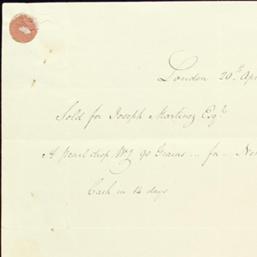 London 20th Ap
Sold for Joseph Martinez Esqr
A pearl drop Wg 90 Grains ... for ... Ni
Cash in 14 days